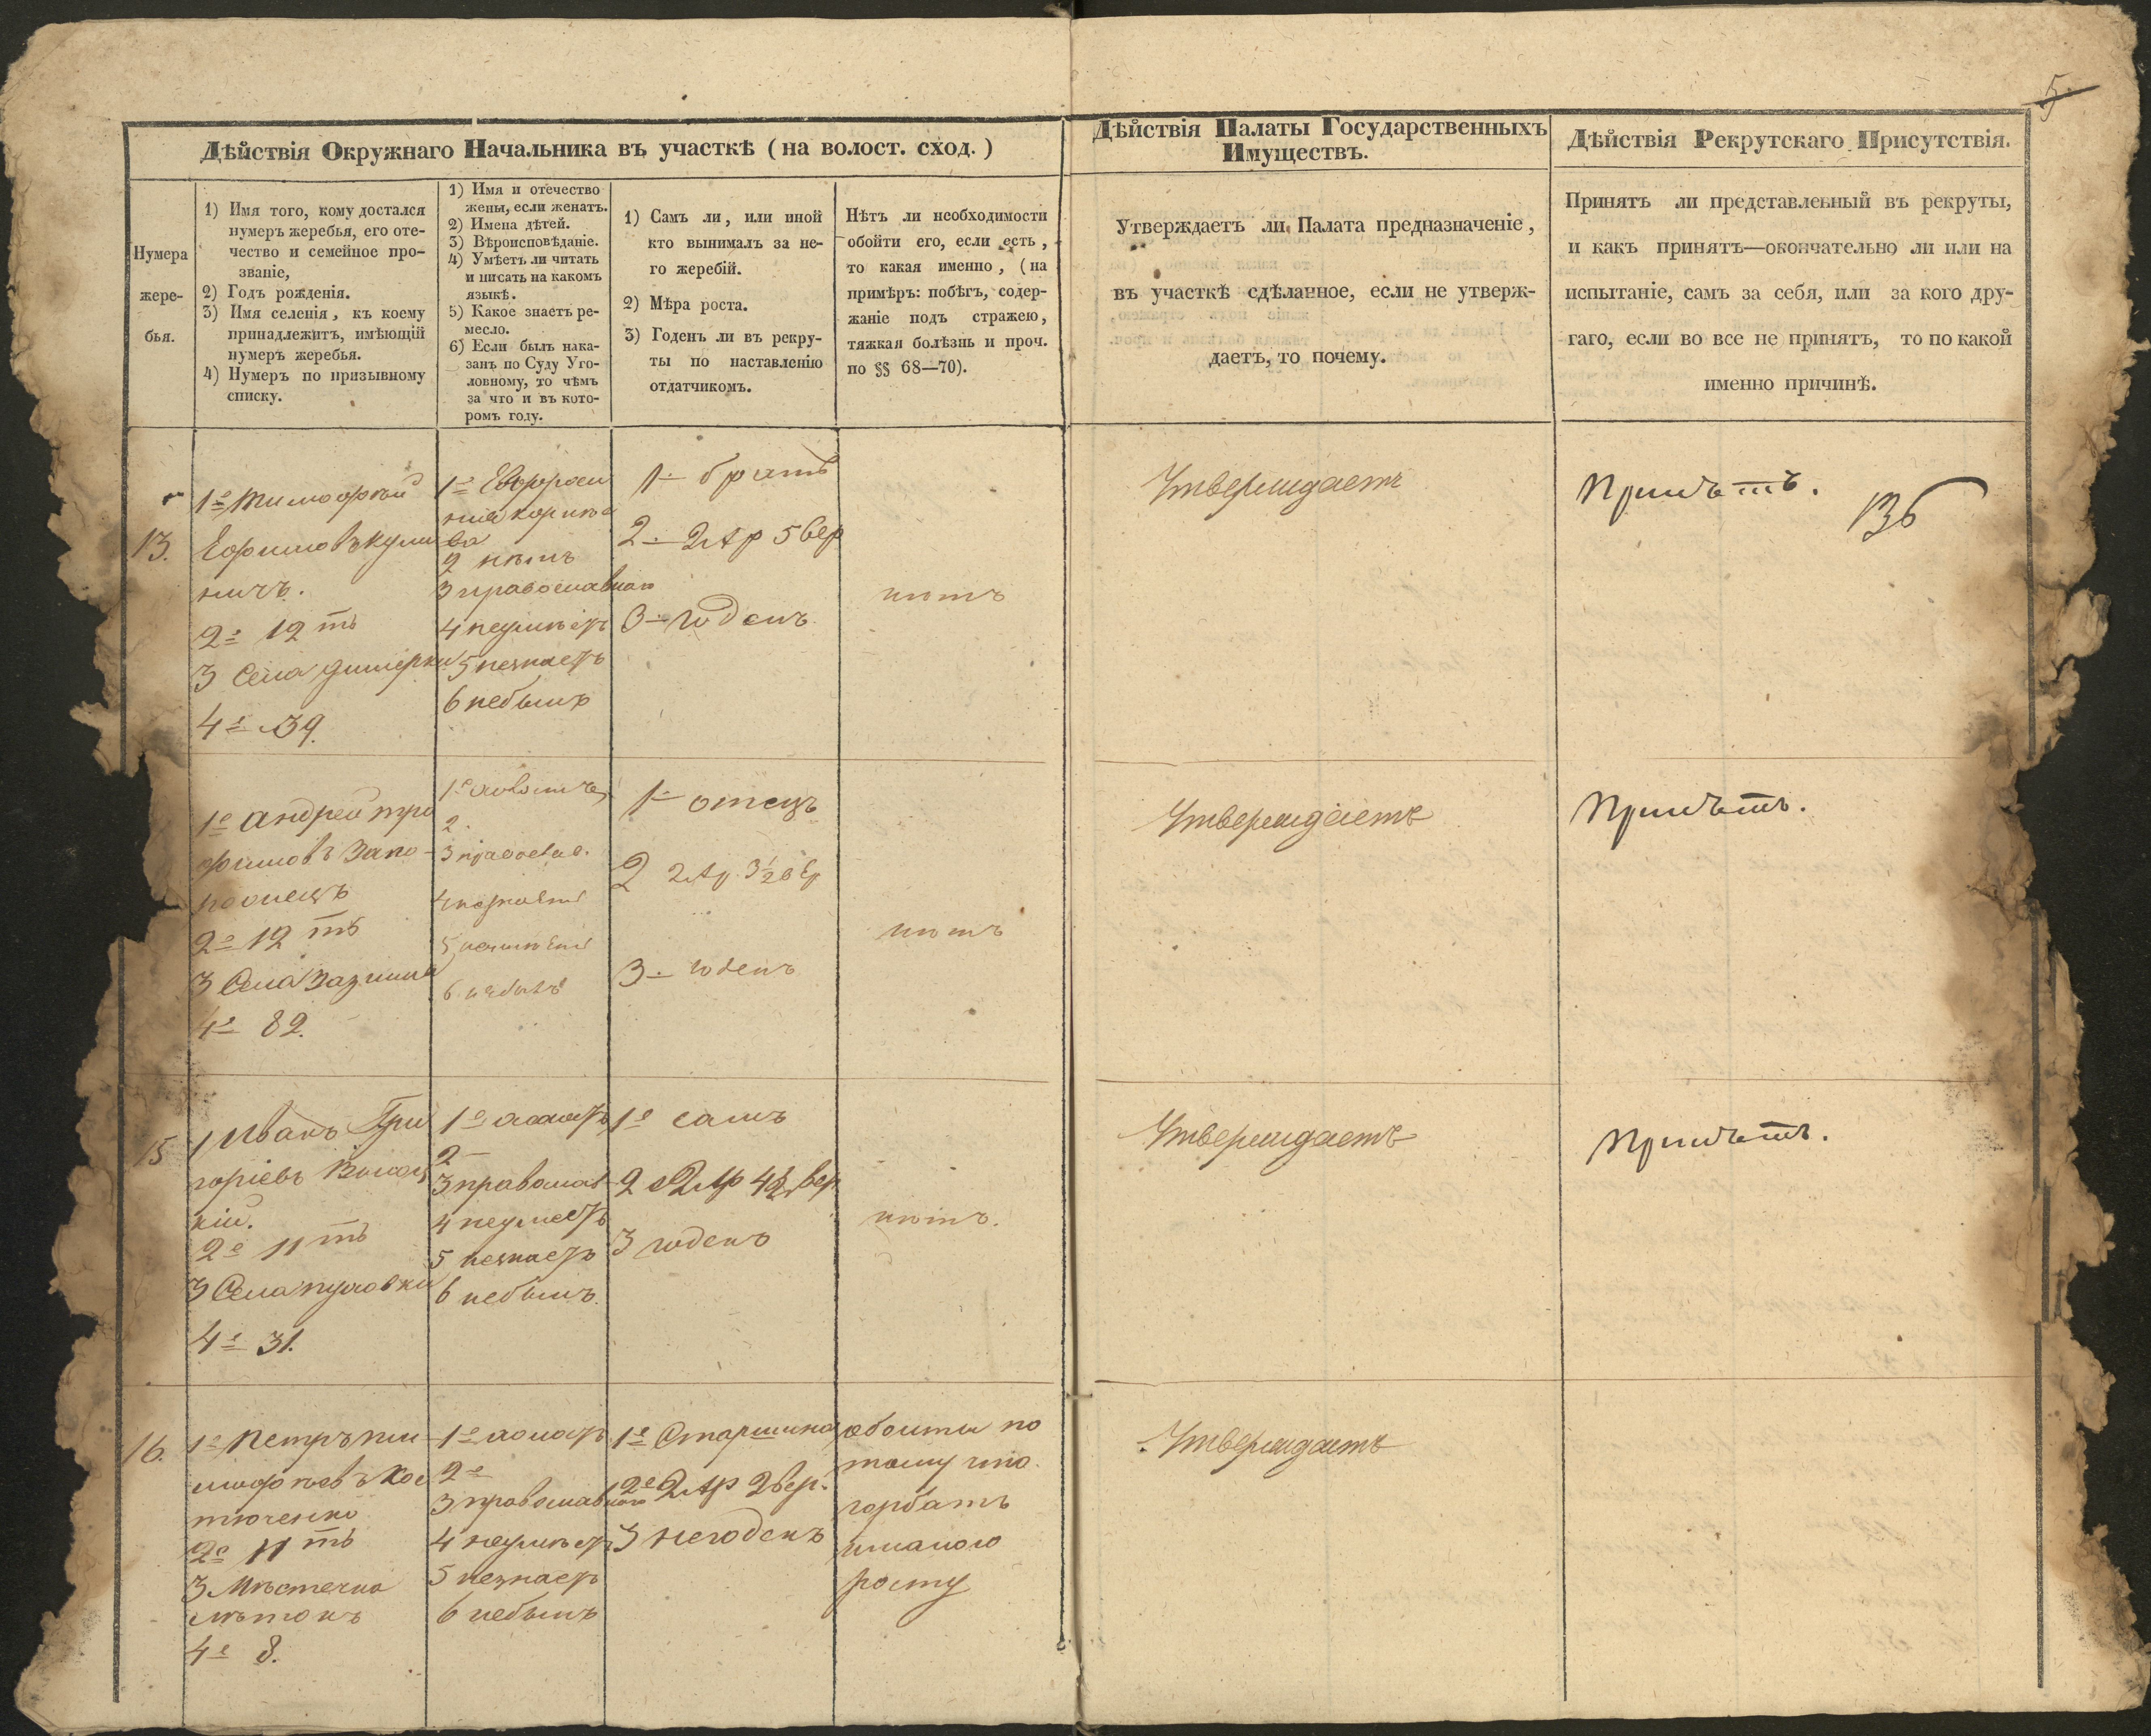 5
Дѣйствія Окружнаго Начальника въ участкѣ (на волост. сход.)
Дѣйствія Палаты Государственныхъ
Имуществъ.
Дѣйствія Рекрутскаго Присутствія.
Нумера
жере-
бья.
1) Имя того, кому достался
нумеръ жеребья, его оте-
чество и семейное про-
званіе,
2) Годъ рожденія.
3) Имя селенія, къ коему
принадлежитъ, имѣющій
нумеръ жеребья.
4) Нумеръ по призывному
списку.
1) Имя и отечество
жены, если женатъ.
2) Имена дѣтей.
3) Вѣроисповѣданіе.
4) Умѣетъ ли читать
и писать на какомъ
языкѣ.
5) Какое знаетъ ре-
месло.
6) Если былъ нака-
занъ по Суду Уго-
ловному, то чѣмъ
за что и въ кото-
ромъ году.
1) Самъ ли, или иной
кто вынималъ за не-
го жеребій.
2) Мѣра роста.
3) Годенъ ли въ рекру-
ты по наставленію
отдатчикомъ.
Нѣтъ ли необходимости
обойти его, если есть,
то какая именно, (на
примѣръ: побѣгъ, содер-
жаніе подъ стражею,
тяжкая болѣзнь и проч.
по §§ 68—70).
Утверждаетъ ли Палата предназначеніе,
въ участкѣ сдѣланное, если не утверж-
даетъ, то почему.
Принятъ ли представленный въ рекруты,
и какъ принятъ—окончательно ли или на
испытаніе, самъ за себя, или за кого дру-
гаго, если во все не принятъ, то по какой
именно причинѣ.
13.
1е Тимофѣй
Ефимовъ
ничъ.
2е 12тъ
3 Села
4е 39.
1е Ефроси
нія
2 нѣтъ
3 православнаго
4 неумѣетъ
5 незнаетъ
6 небылъ
1— братъ
2— 2 Ар 5 вер
3— годенъ
нѣтъ
Утверждаетъ
Принятъ.
1е Андрей Тро
фимовъ Запо-
рожецъ
2е 12тъ
3 Села
4е 82.
1е холостъ
2.
3 православ.
6 небылъ
1— отецъ
2 2 Ар. 3½ вер
3— годенъ
нѣтъ
Утверждаетъ
Принятъ.
15
1 Иванъ Гри
горіевъ
кій.
2е 11тъ
3 Села
4е 31.
1е холостъ
2—
3 православ
4 неумѣетъ
5 незнаетъ
6 небылъ.
1е самъ
2е 2 Ар 4½ вер
3 годенъ
нѣтъ.
Утверждаетъ
Принятъ.
16.
1е Петръ Ти
мофѣевъ Кос
тюченко
2е 11тъ
3 Мѣстечка
4е 8.
1е холостъ
2е
3 православнаго
4 неумѣетъ
5 незнаетъ
6 небылъ
1е Старшина
2е 2 Ар 2 вер.
3 негоденъ
обойти по
тому что
горбатъ
ималого
росту
Утверждаетъ